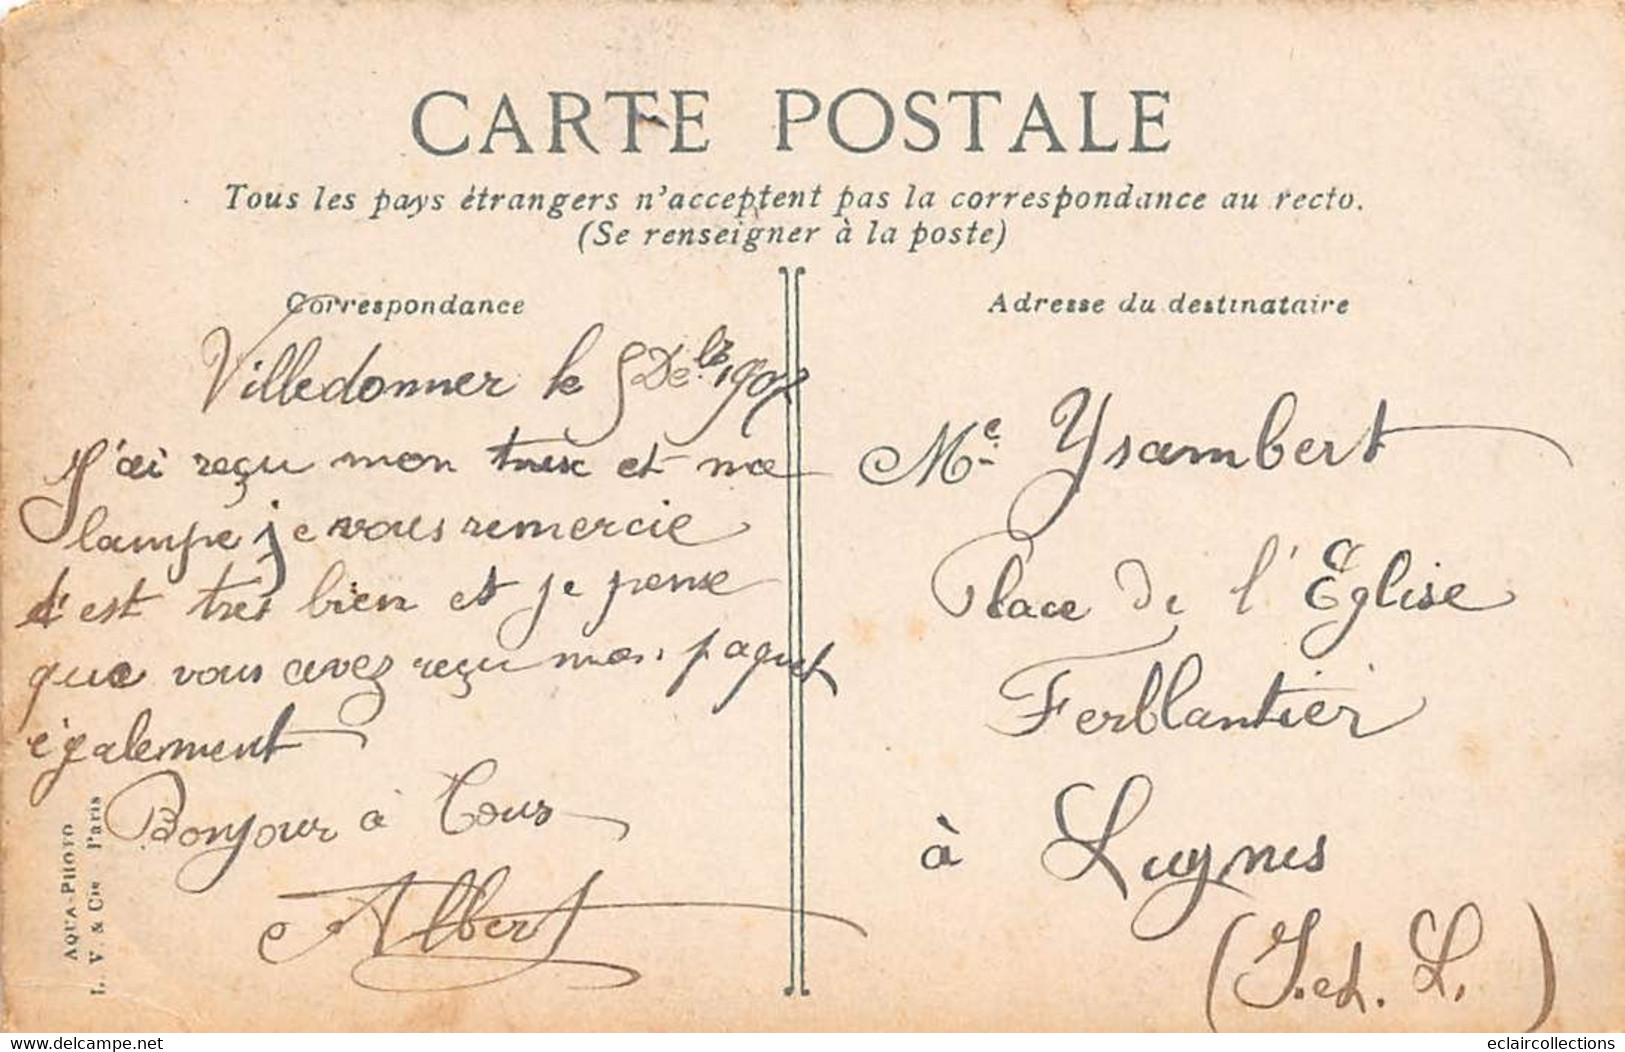 CARTE POSTALE
Tous les pays étrangers n'acceptent pas la correspondance au recto.
(Se renseigner à la poste)
Correspondance
Villedonner le 5 Dé. bz 1907
J'ai reçu mon et ma
lampe je vous remercie
c'est tres bien et je pense
que vous avez reçu mon paquet
également
Bonjour à Tous
Albert
AQUA-PHOTO
L. V. & Cie Paris
Adresse du destinataire
Me Ysambert
Place de l'Église
Ferblantier
à Luynes
(I. et. L.)
www.delcampe.net
eclaircollections